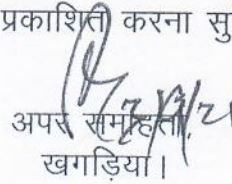 प्रकाशित करना सु
अपर समाहर्ता,
खगड़िया।